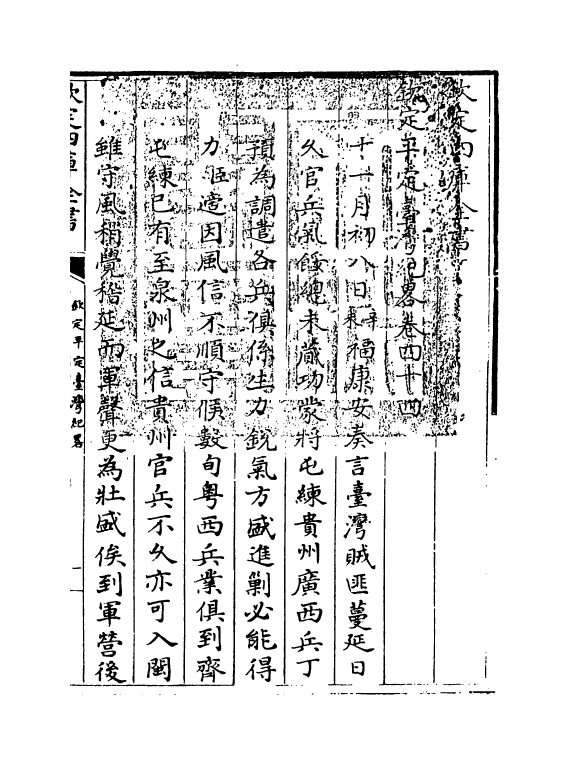 欽定四庫全書
欽定平定臺灣紀畧卷四十四
十一月初八日福康安奏言臺灣賊匪蔓延日
久官兵氣餒總未蕆功蒙將屯練貴州廣西兵丁
預為調遣各兵俱係生力銳氣方盛進剿必能得
力臣適因風信不順守候數旬粵西兵業俱到齊
屯練已有至泉州之信貴州官兵不久亦可入閩
雖守風稍覺稽延而軍聲更為壯盛俟到軍營後
欽定四庫全書
欽定平定臺灣紀畧
一